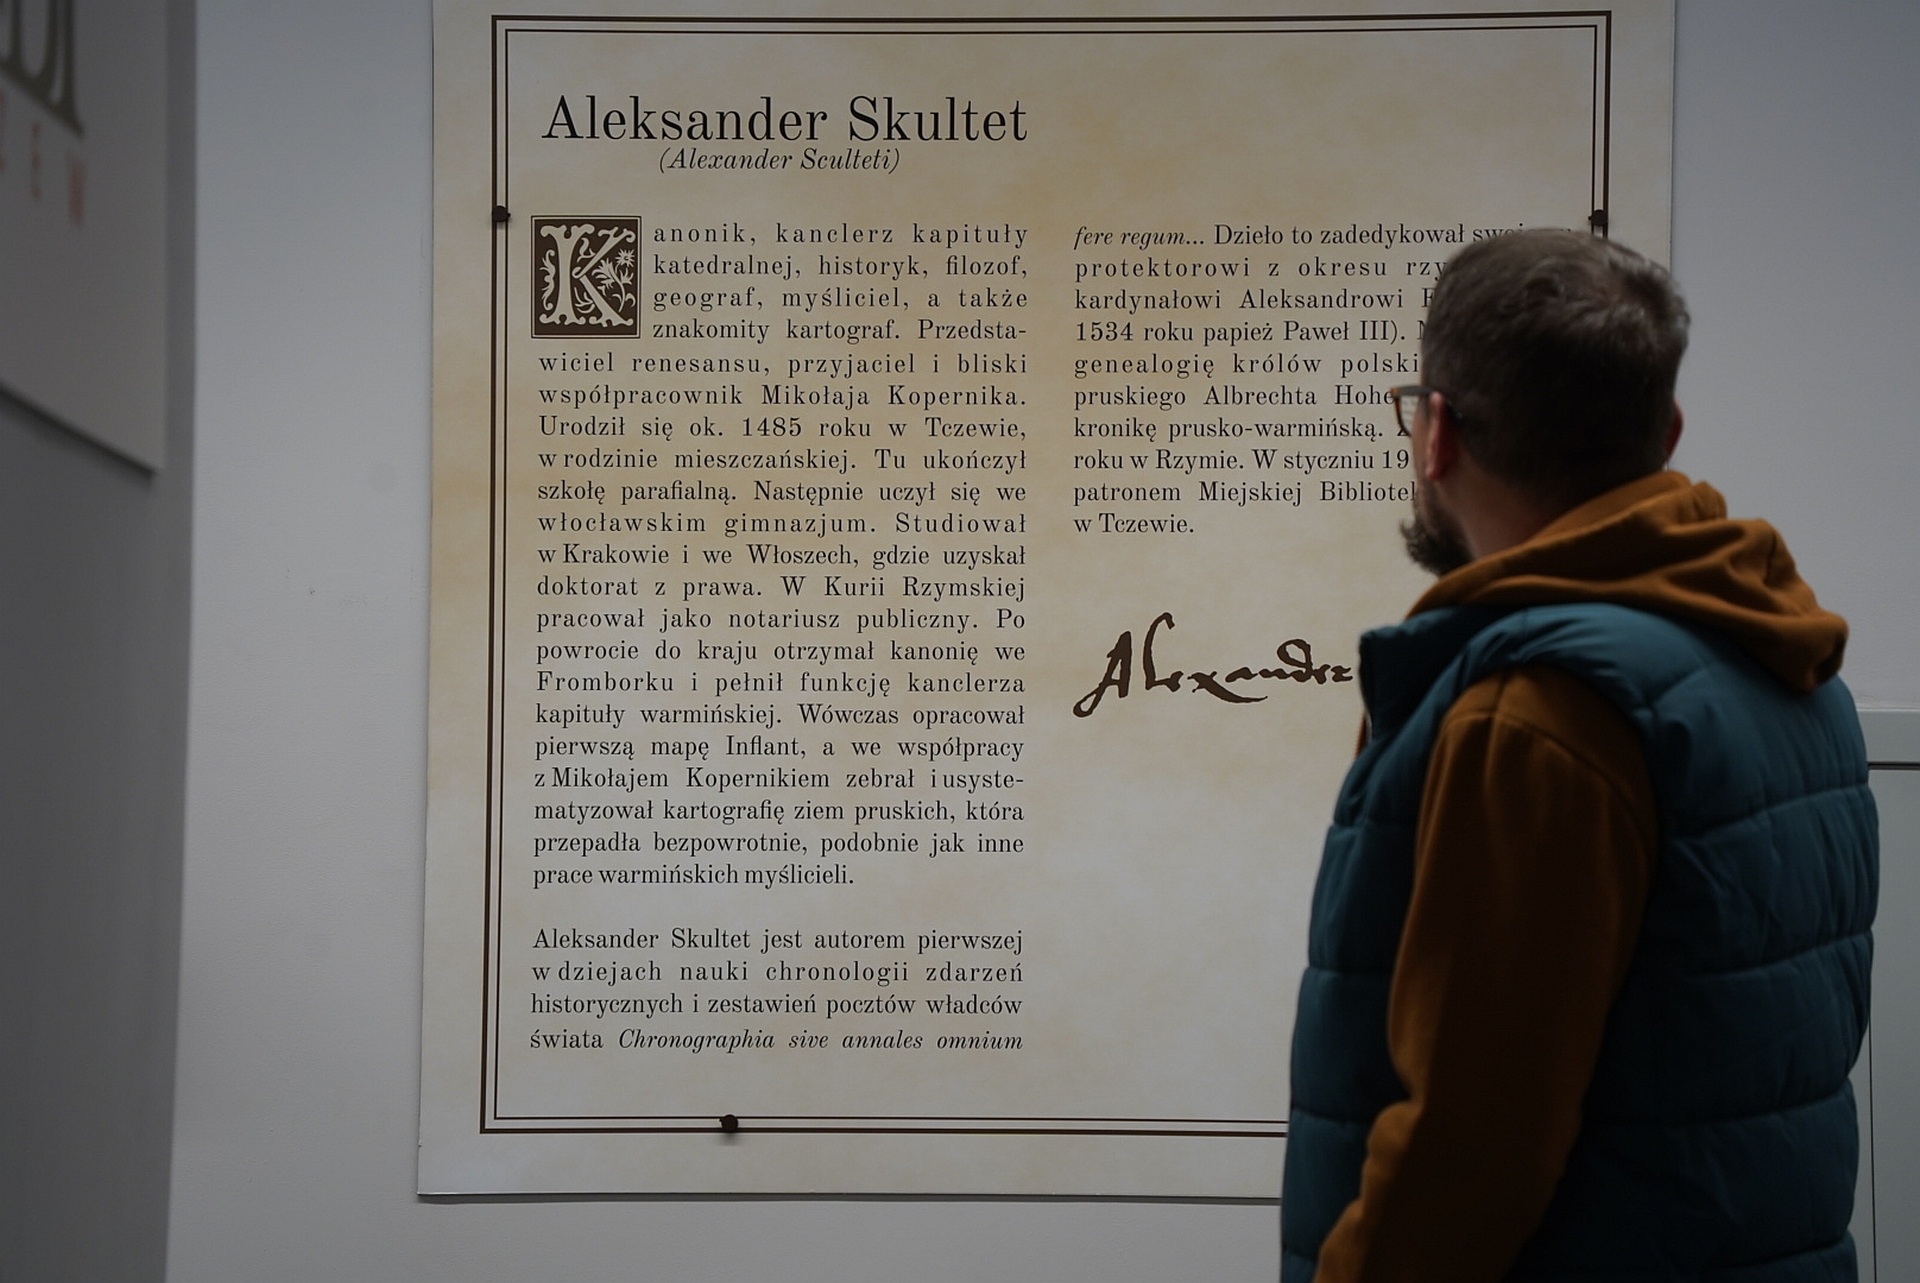 Aleksander Skultet
(Alexander Sculteti)
Kanonik, kanclerz kapituły
katedralnej, historyk, filozof,
geograf, myśliciel, a także
znakomity kartograf. Przedsta-
wiciel renesansu, przyjaciel i bliski
współpracownik Mikołaja Kopernika.
Urodził się ok. 1485 roku w Tczewie,
w rodzinie mieszczańskiej. Tu ukończył
szkołę parafialną. Następnie uczył się we
włocławskim gimnazjum. Studiował
w Krakowie i we Włoszech, gdzie uzyskał
doktorat z prawa. W Kurii Rzymskiej
pracował jako notariusz publiczny. Po
powrocie do kraju otrzymał kanonię we
Fromborku i pełnił funkcję kanclerza
kapituły warmińskiej. Wówczas opracował
pierwszą mapę Inflant, a we współpracy
z Mikołajem Kopernikiem zebrał i usyste-
matyzował kartografię ziem pruskich, która
przepadła bezpowrotnie, podobnie jak inne
prace warmińskich myślicieli.
Aleksander Skultet jest autorem pierwszej
w dziejach nauki chronologii zdarzeń
historycznych i zestawień pocztów władców
świata Chronographia sive annales omnium
fere regum... Dzieło to zadedykował
protektorowi z okresu
kardynałowi Aleksandrowi
1534 roku papież Paweł III).
genealogię królów
pruskiego Albrechta
kronikę prusko-warmińską.
roku w Rzymie. W styczniu
patronem Miejskiej
w Tczewie.
Alexander